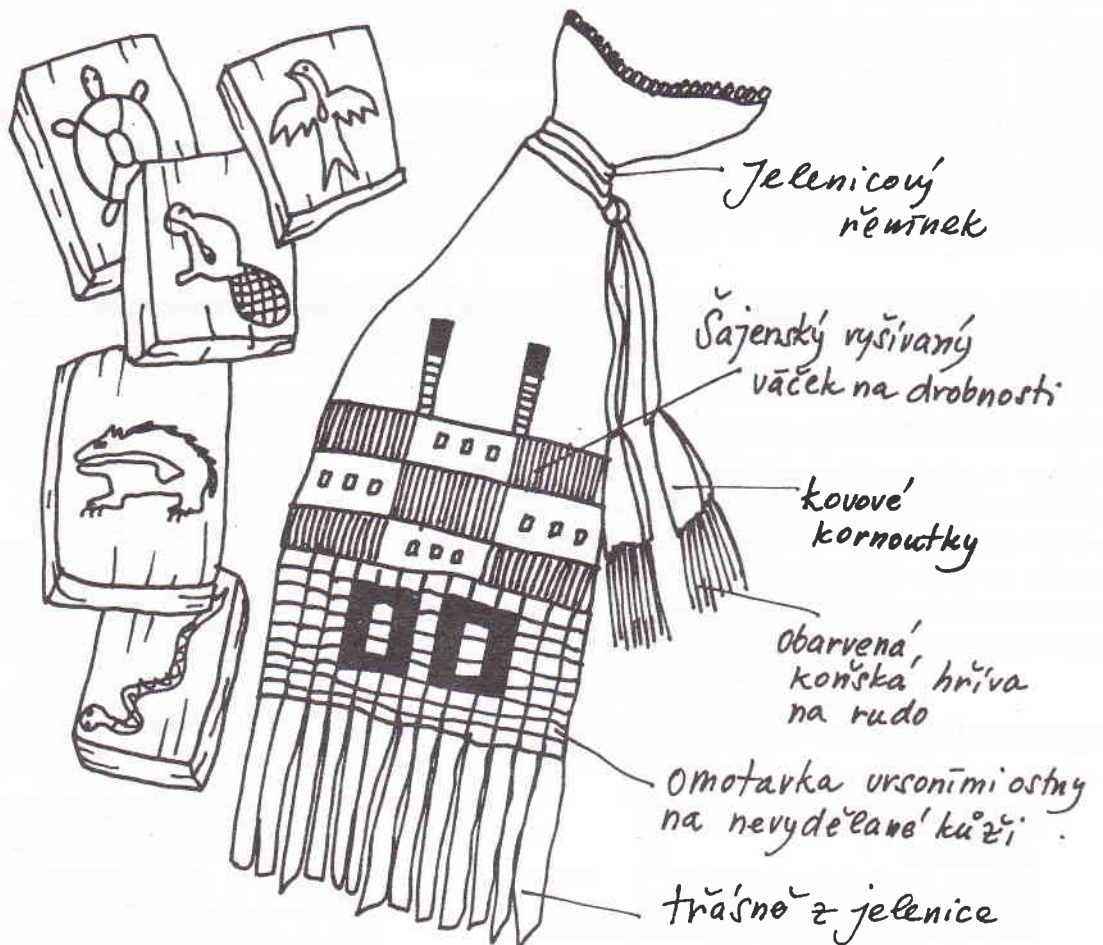 Jelenicový
řemínek
Šajenský vyšívaný
váček na drobnosti
kovové
kornoutky
obarvená
koňská hříva
na rudo
omotavka ursoními ostny
na nevydělané kůži
třásně z jelenice